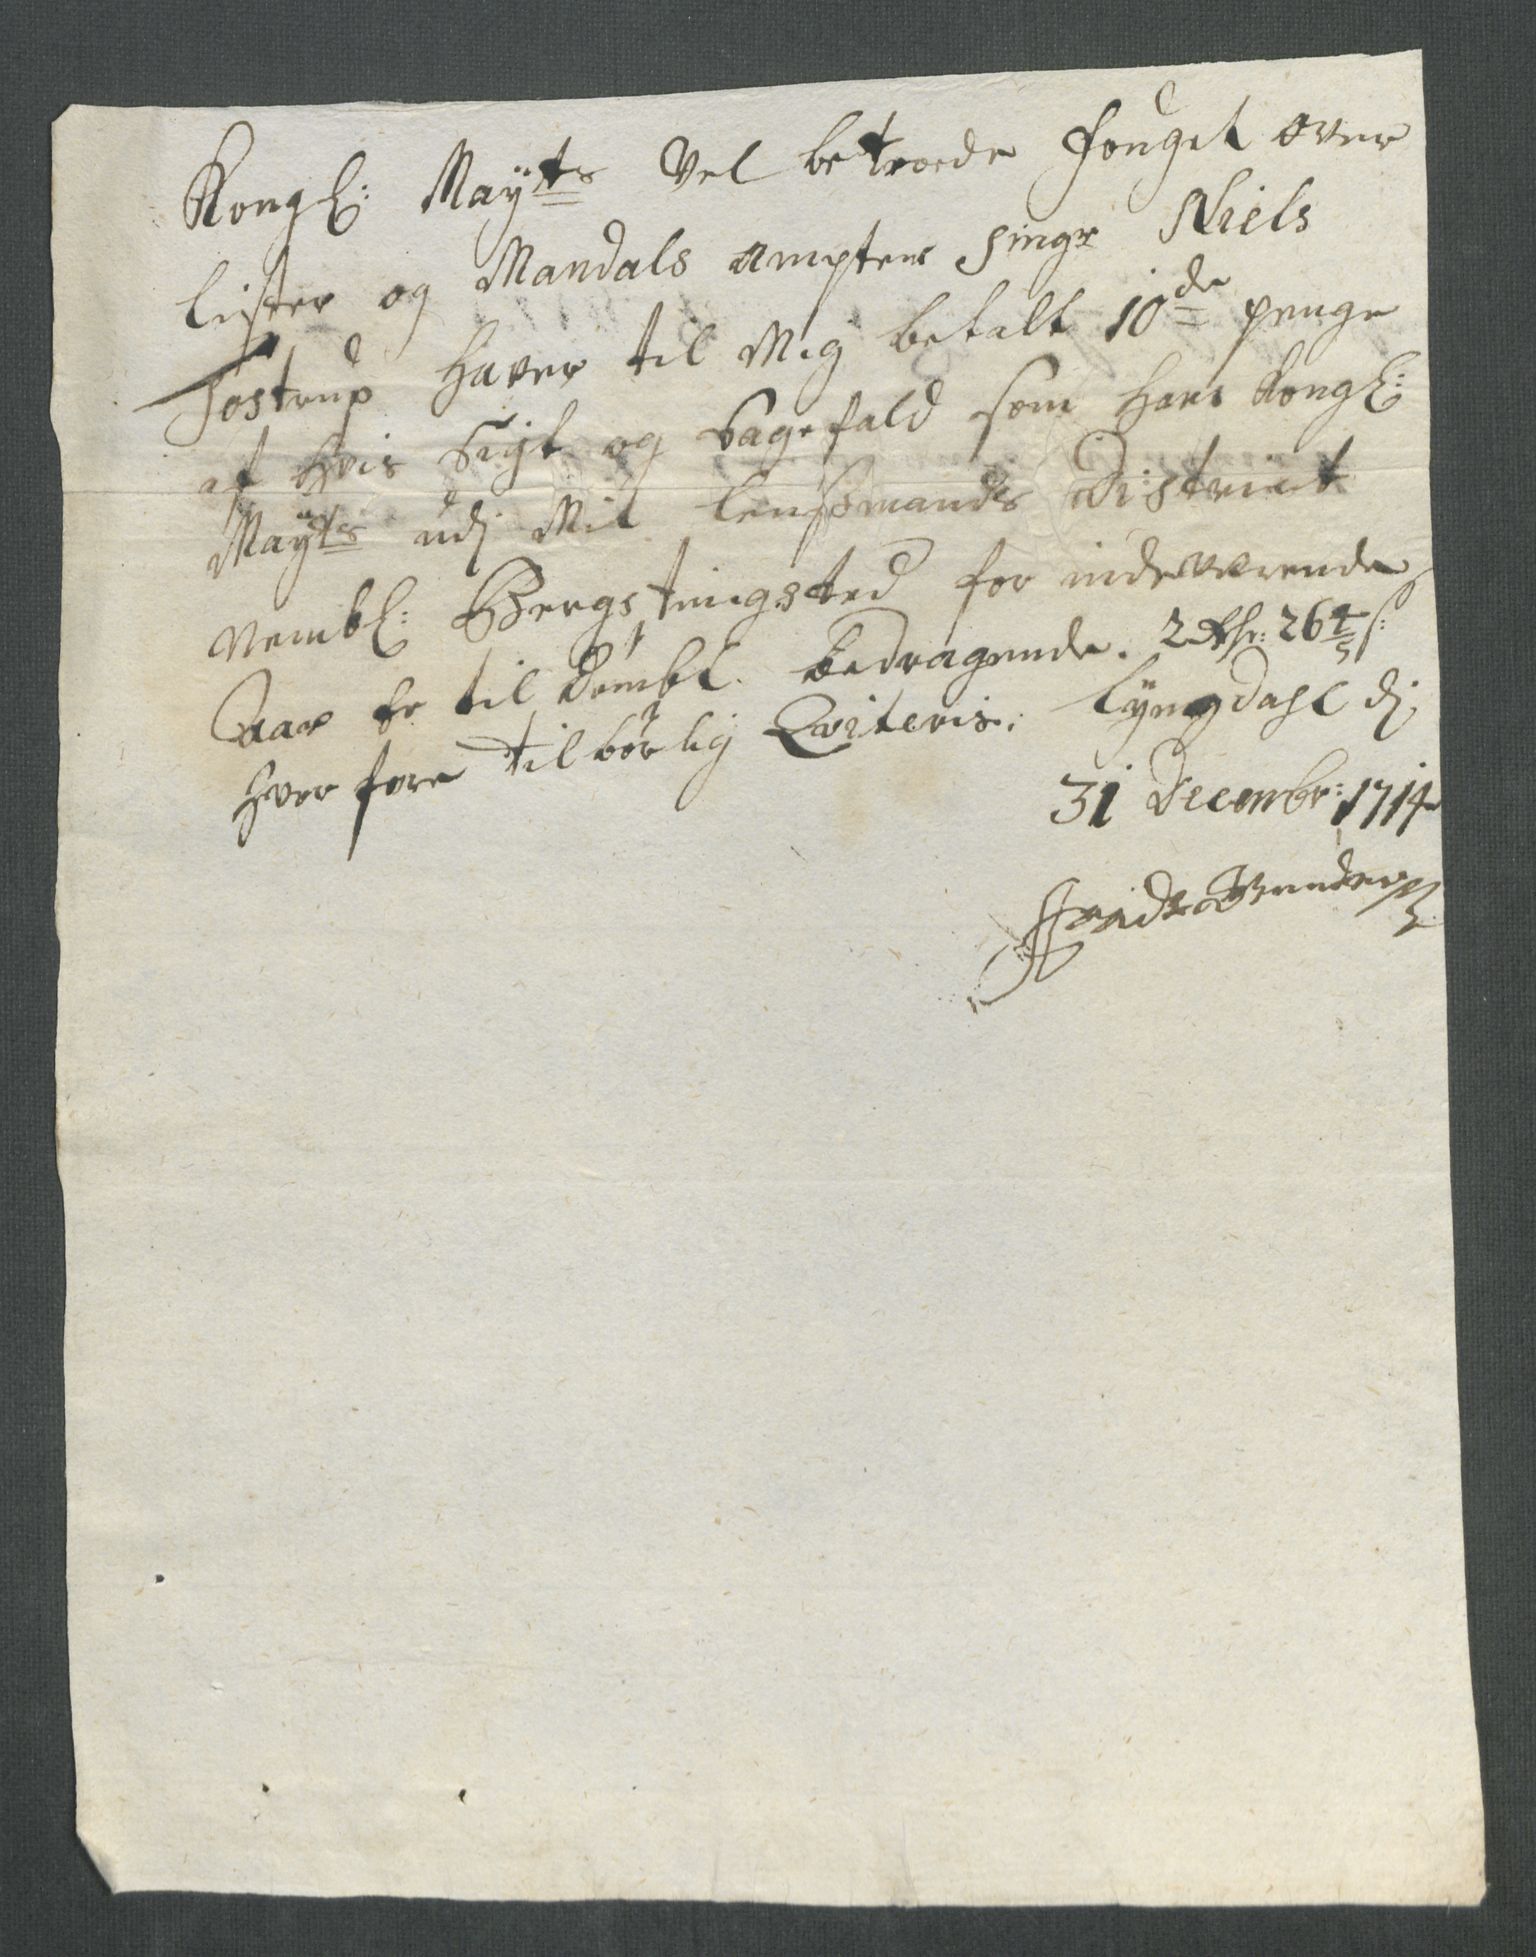 Kongl: Mayts Vel betroede fouget over
Lister og Mandals ampter Singr Niels
Tostrup haver til Mig betalt 10de penge
af hvis Sigt og Sagefald som hans Kongl:
Mayts udj Mit Lensmands District
Nembl: Bergs tingsted for indeværende
Aar er til dømbt. bedragende. 2 Rdr: 26 4/5 s:
hvor fore tilbørlig Qviteris. Lyngdahl dj
31 Decembr: 1714